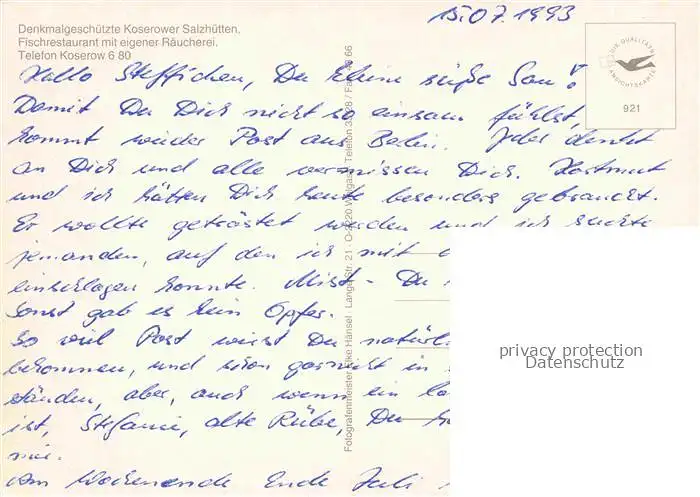 15.07.1993
Denkmalgeschützte Koserower Salzhütten,
Fischrestaurant mit eigener Räucherei.
Telefon Koserow 6 80
DIE QUALITÄTS
ANSICHTSKARTE
921
Hallo Steffichen, Du kleine süße Sau!
Damit Du Dich nicht so einsam fühlst,
kommt wieder Post aus Berlin. Jeder denkt
an Dich und alle vermissen Dich. Hartmut
und ich hätten Dich heute besonders gebraucht.
Er wollte getröstet werden und ich suchte
jemanden, auf den ich mit
einschlagen konnte. Mist - Du
Sonst gab es kein Opfer.
So viel Post wirst Du
bekommen, und schon garnicht in
ständen, aber, auch wenn ein
ist, Stefanie, alte Rübe, Du
nie.
Am Wochenende Ende Juli
Fotografenmeister Elke Hänsel · Lange Str. 21 · O-2220 Wolgast · Telefon
privacy protection
Datenschutz